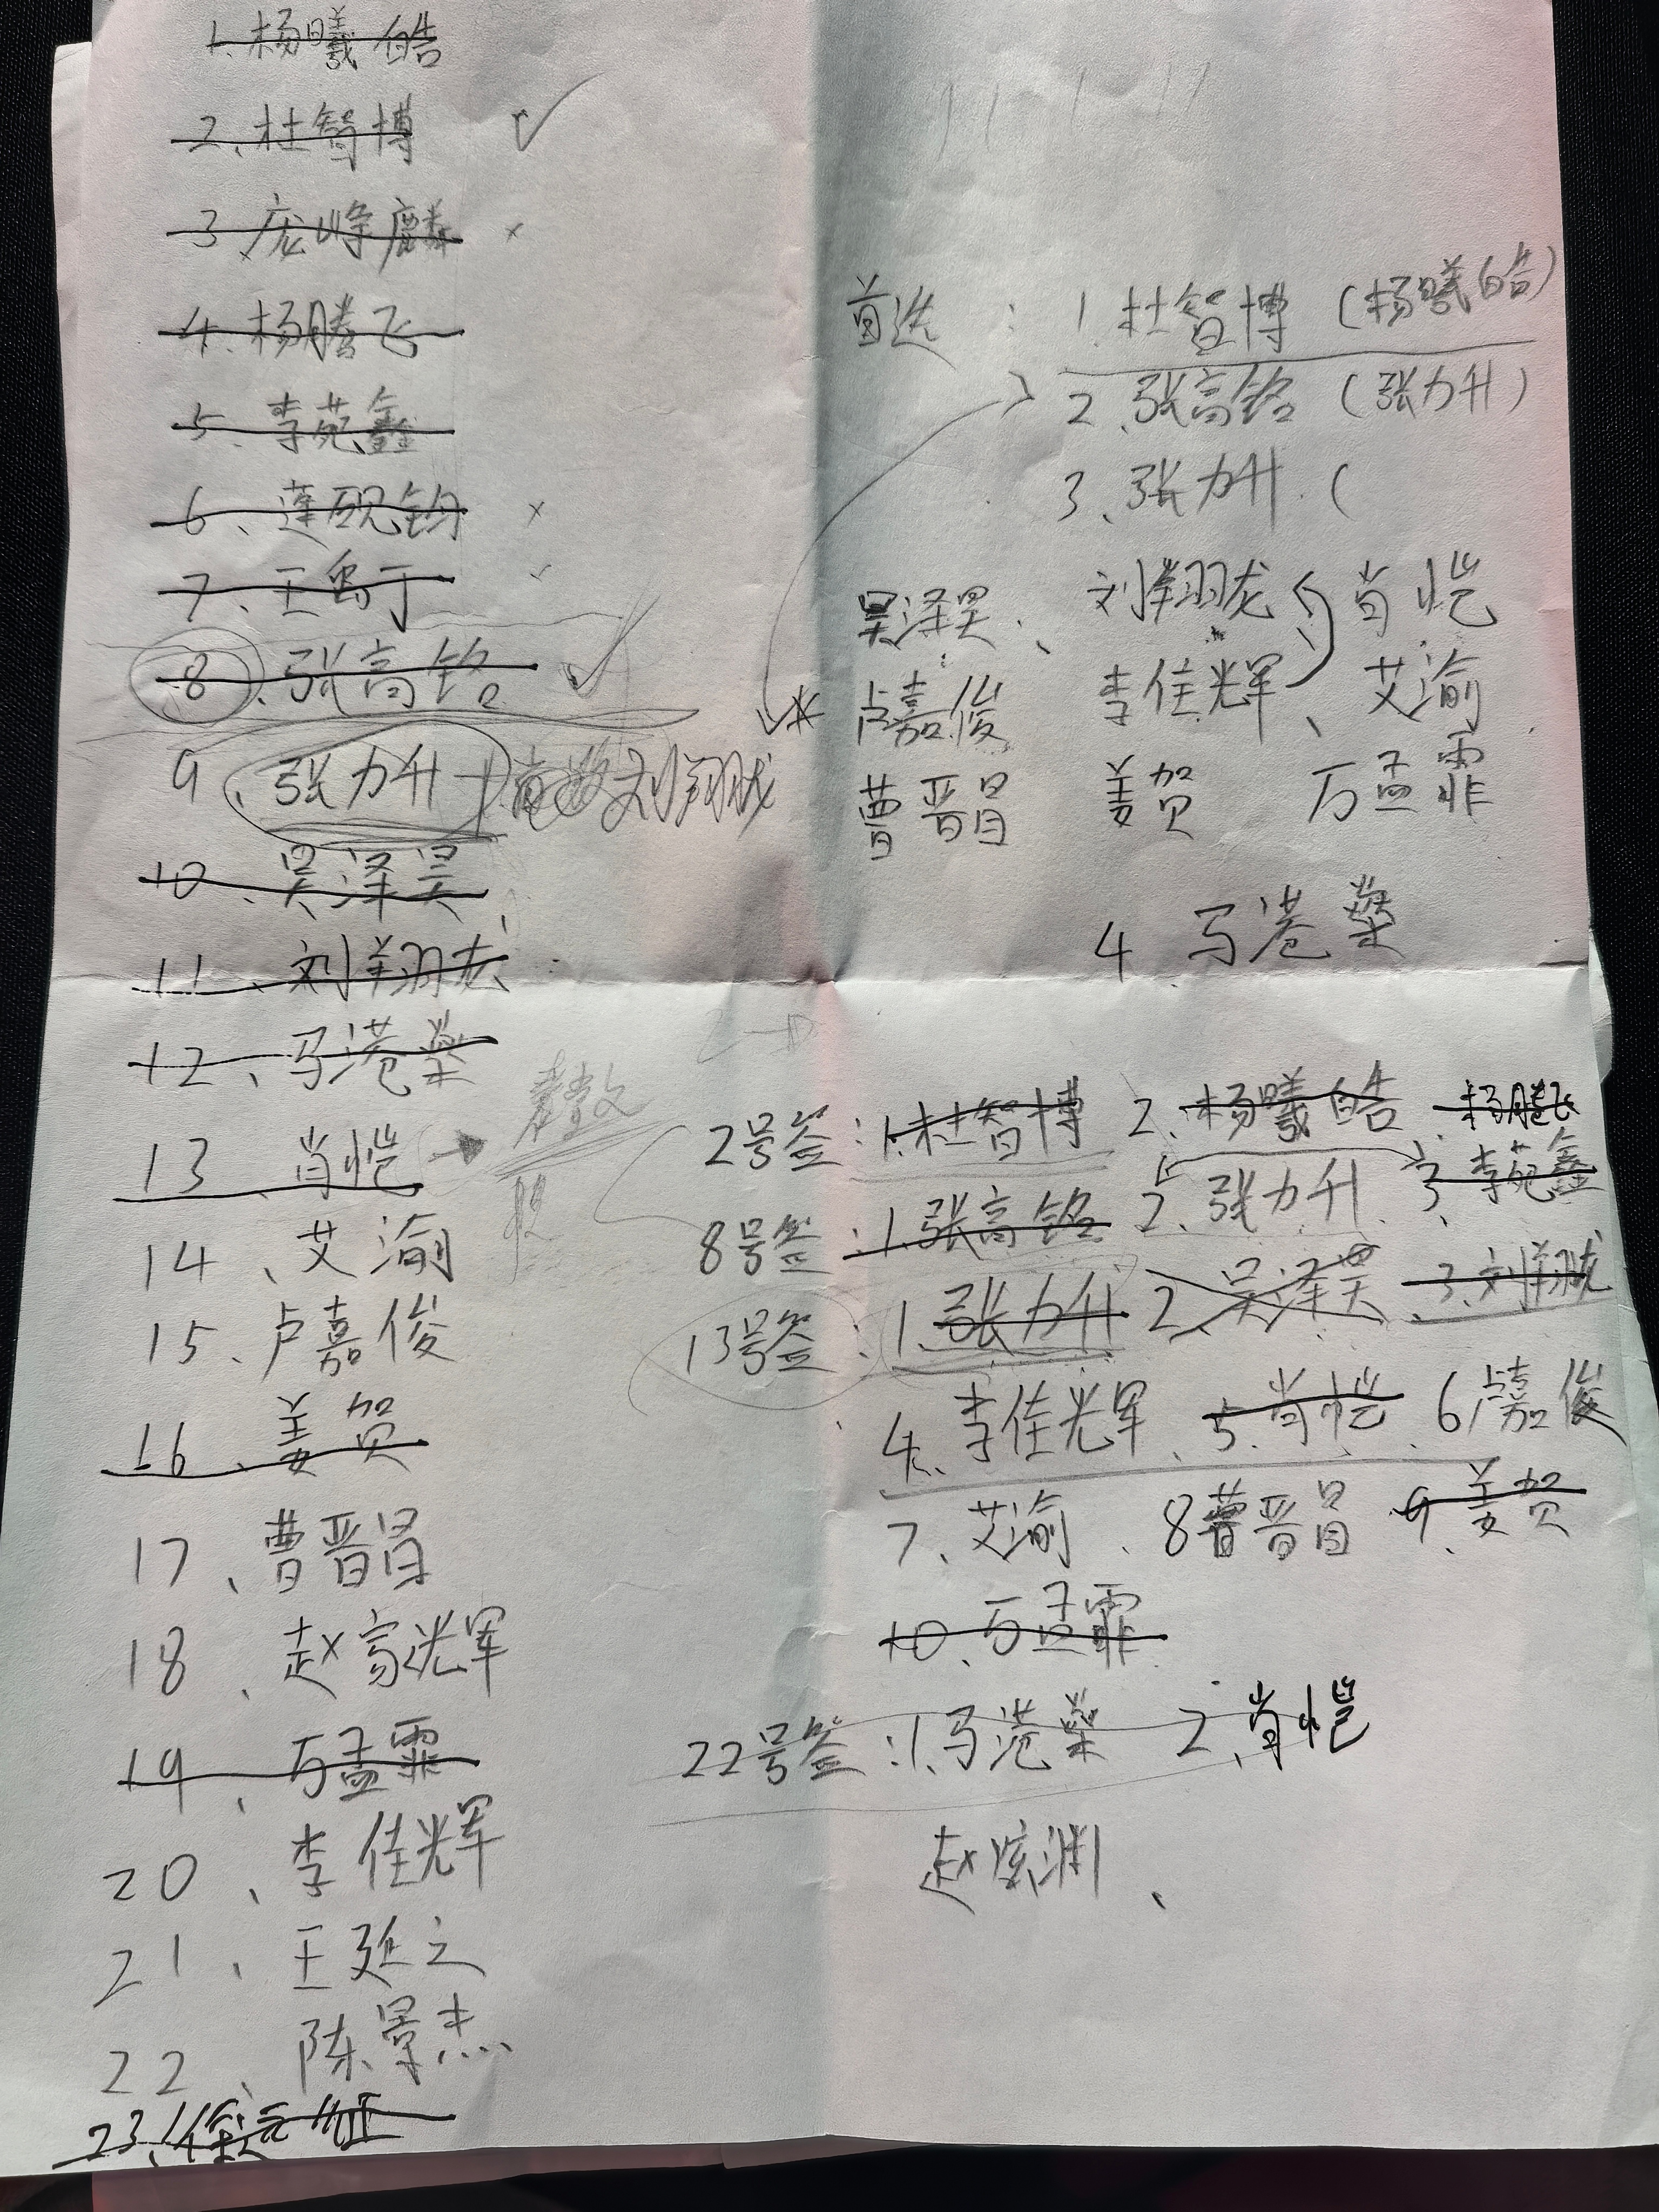 1. 杨曦皓
2、杜智博
3 庞峰麟
4. 杨腾飞
5、李苑鑫
6、蓬砚钧
7、王
8、张高铭
9、张力升 刘翔龙
10、吴泽昊
11、刘翔龙
12、马港荣
13、肖恺
14、艾渝
15、卢嘉俊
16、姜贺
17、曹晋昌
18、赵家光军
19、万孟霏
20、李佳辉
21、王延之
22、陈景杰
23、
首选：1.杜智博（杨曦皓）
2.张高铭（张力升）
3、张力升（
吴泽昊、刘翔龙 肖恺
卢嘉俊 李佳辉、艾渝
曹晋昌 姜贺 万孟霏
4 马港荣
2号签：1.杜智博 2.杨曦皓 杨腾飞
3、李苑鑫
8号签：1.张高铭 2、张力升
13号签：1、张力升 2、吴泽昊 3、刘翔龙
4、李佳辉、5、肖恺、6卢嘉俊
7、艾渝、8曹晋昌 9、姜贺
10、万孟霏
22号签：1、马港荣 2、肖恺
赵渊、